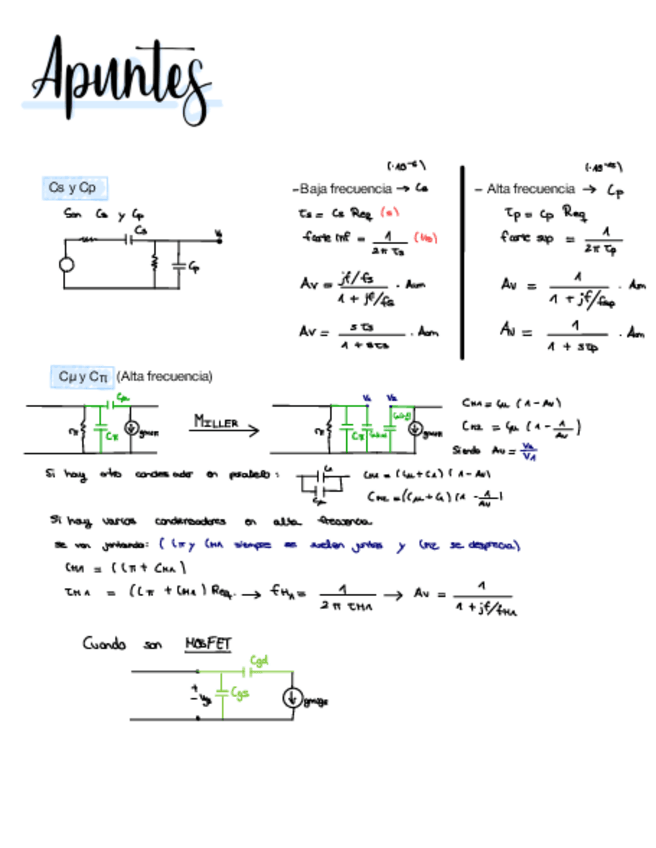 Apuntes
Cs y Cp
Son Cs y Cp
Cs
Cp
(·10⁻⁶)
- Baja frecuencia → Cs
τs = Cs Req (s)
fcorte inf = 1 / 2π τs (Hz)
Av = jf/fs / 1 + jf/fs · Aom
Av = sτs / 1 + sτs · Aom
- Alta frecuencia → Cp
τp = Cp Req
fcorte sup = 1 / 2π τp
Av = 1 / 1 + jf/fsup · Am
Av = 1 / 1 + sτp · Am
Cμ y Cπ (Alta frecuencia)
Cμ
rπ
Cπ
MILLER
V1 V2
rπ
Cπ
CM1 = Cμ (1 - Av)
CM2 = Cμ (1 - 1/Av)
Siendo Av = V2/V1
Si hay otro condensador en paralelo:
Cμ
CM1 = (Cμ + C1) (1 - Av)
CM2 = (Cμ + C1) (1 - 1/Av)
Si hay varios condensadores en alta frecuencia
se van juntando: (Cπ y CM1 siempre se suelen juntas y CM2 se desprecia)
CH1 = (Cπ + CM1)
τH1 = (Cπ + CM1) Req. → fH1 = 1 / 2π τH1 → Av = 1 / 1 + jf/fH1
Cuando son MOSFET
Cgd
+
-
vgs
Cgs
gmvgs